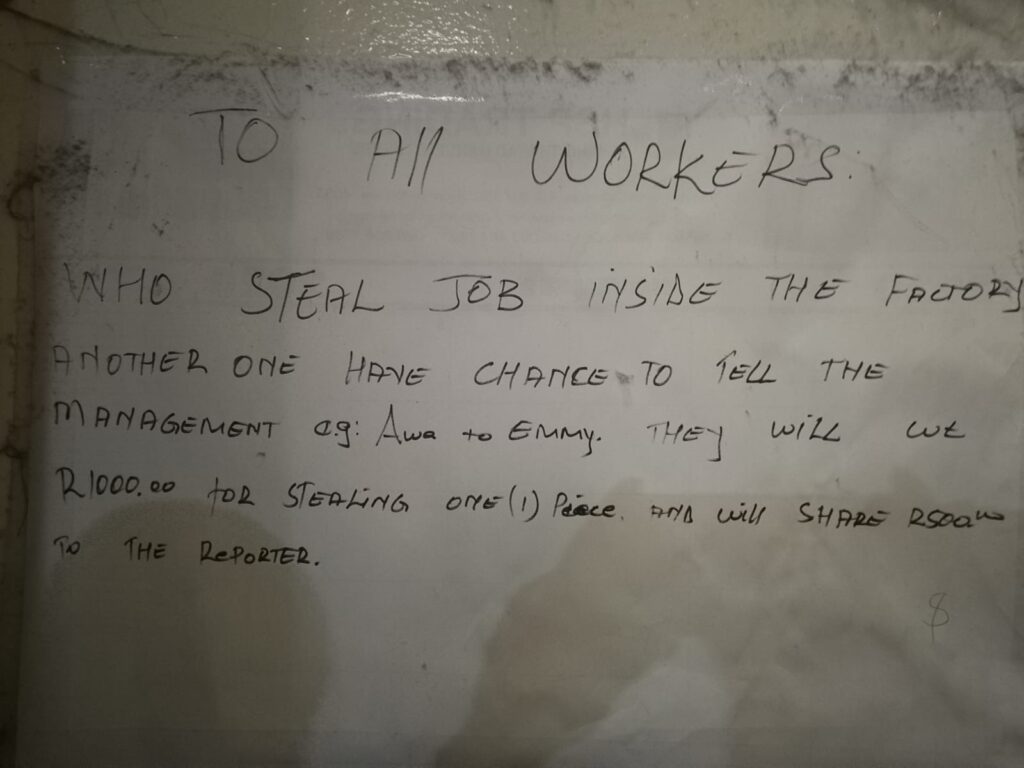 TO All WORKERS:
WHO STEAL JOB iNSiDE THE FACTORY
ANOTHER ONE HAVE CHANCE TO TELL THE
MANAGEMENT e.g: Awa to EMMY. THEY WiLL
R1000.00 FOR STEALiNG ONE (1) Piece. AND Will SHARE R500.00
TO THE RePORTER.
$